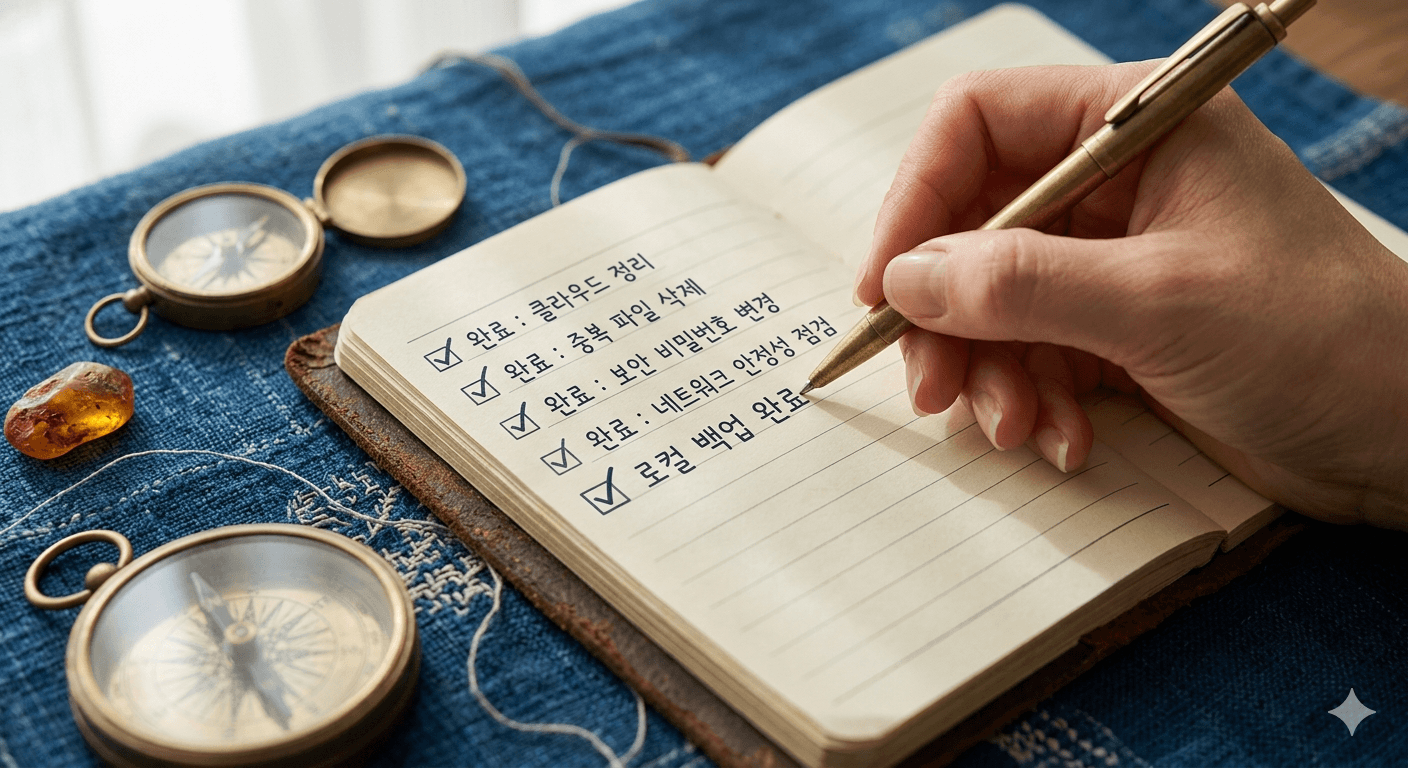 완료 : 클라우드 정리
완료 : 중복 파일 삭제
완료 : 보안 비밀번호 변경
완료 : 네트워크 안정성 점검
로컬 백업 완료